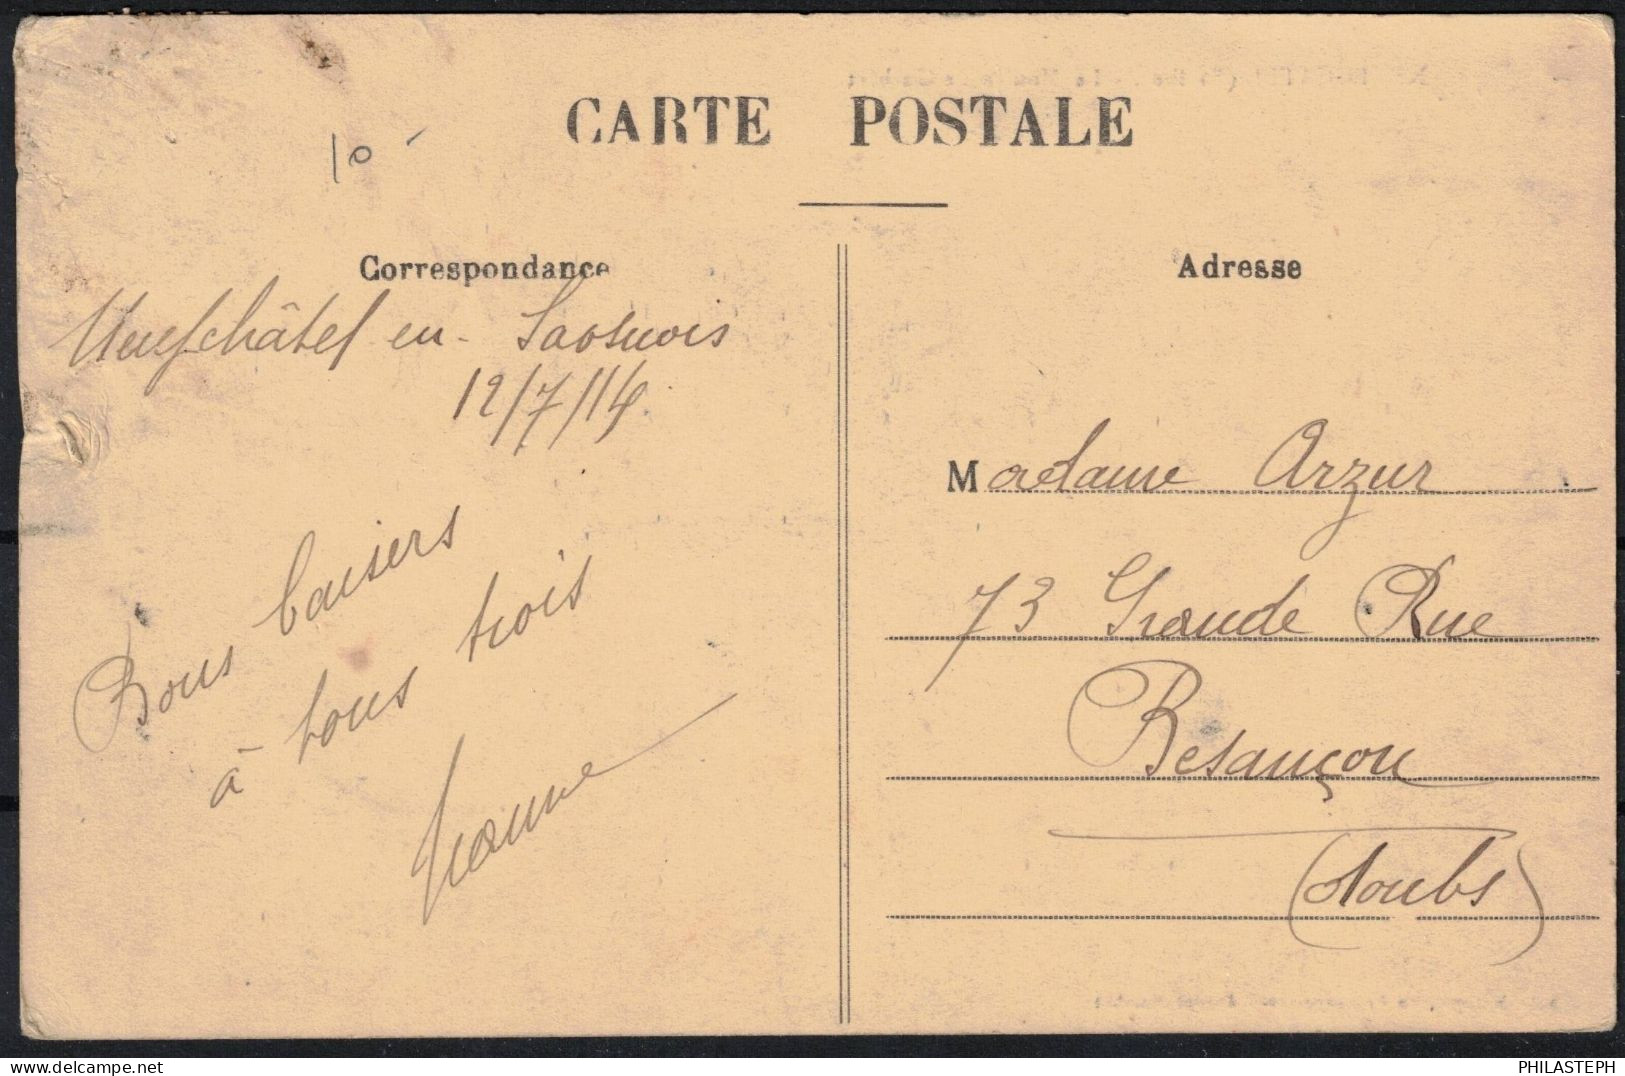 CARTE POSTALE
10 -
Correspondance
Neufchâtel en - Saosnois
12/7/14
Bons baisers
à tous trois
Jeanne
Adresse
Madame Arzur
73 Grande Rue
Besançon
(Doubs)
delcampe.net
PHILASTEPH